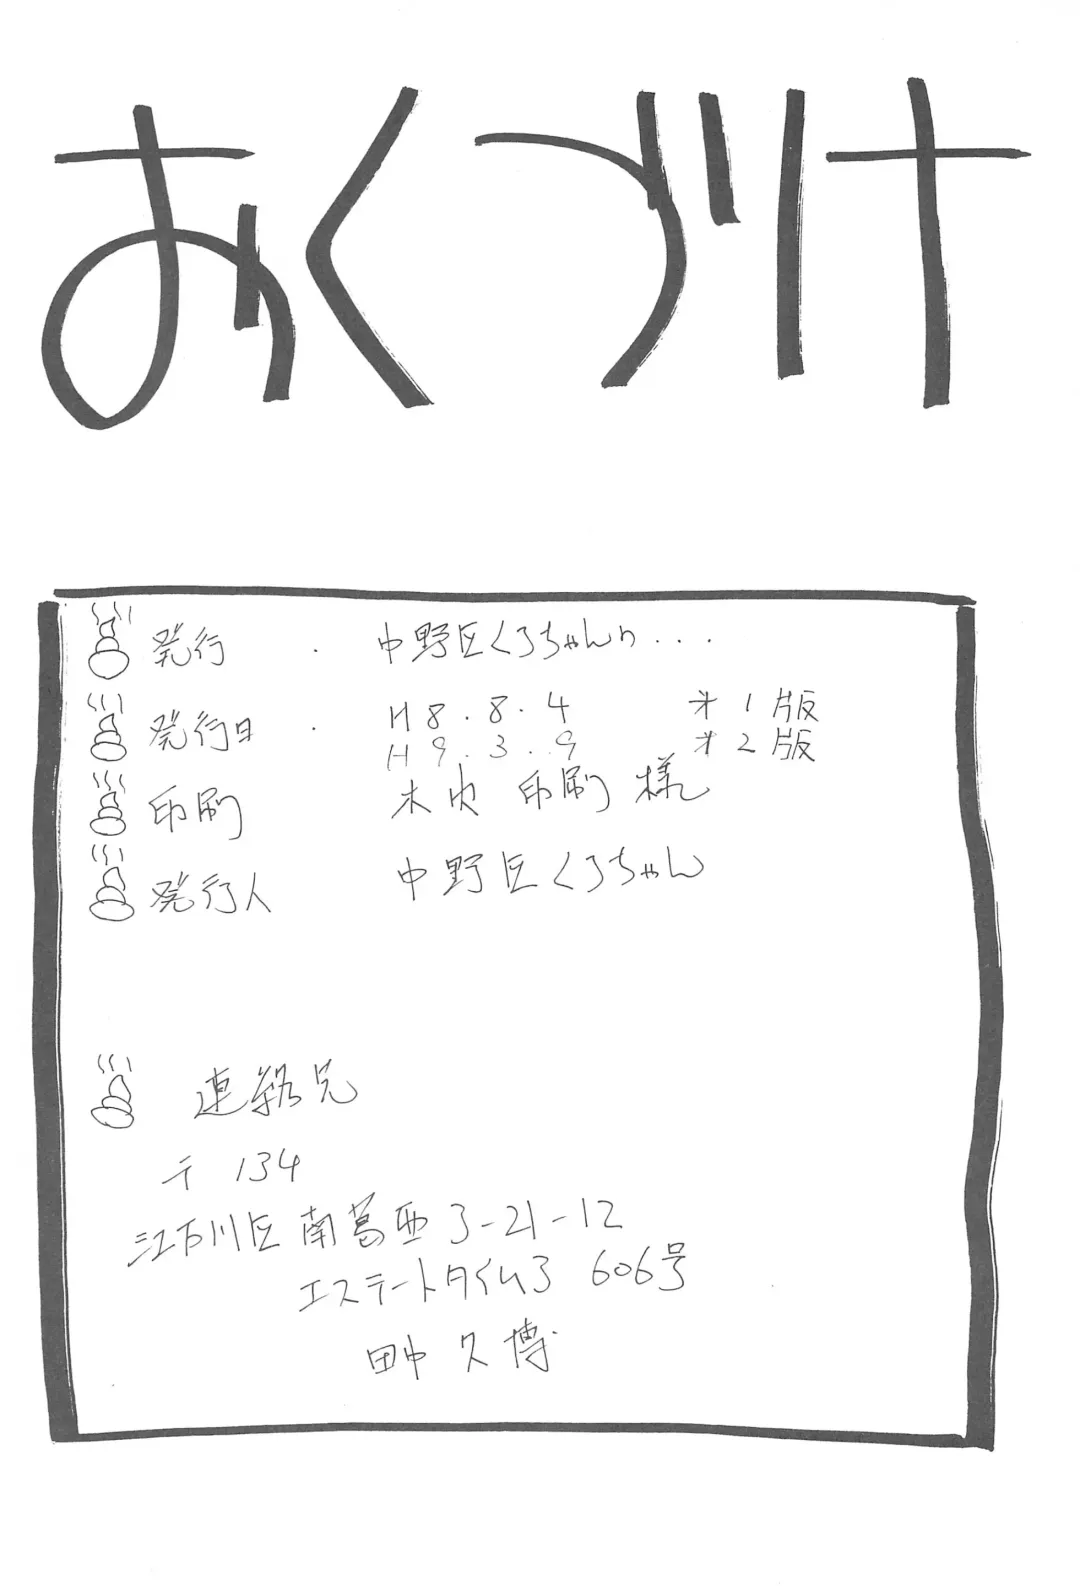 おくづけ
発行 . 中野区くろちゃんり...
発行日 . H8.8.4 才1版
H9.3.9 才2版
印刷 木内印刷様
発行人 中野区くろちゃん
連絡先
〒134
江戸川区南葛西3-21-12
エステートタイム3 606号
田中久博